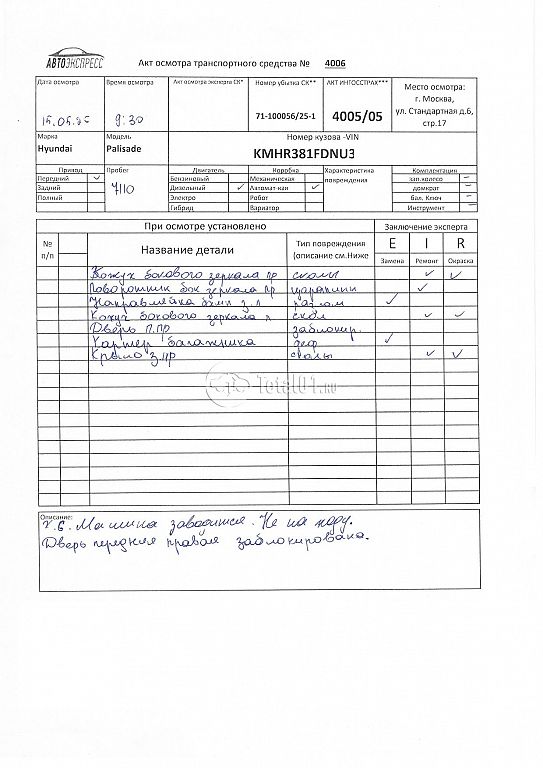 АВТОЭКСПРЕСС
Акт осмотра транспортного средства № 4006
Дата осмотра Время осмотра Акт осмотра эксперта СК* Номер убытка СК** АКТ ИНГОССТРАХ*** Место осмотра:
г. Москва,
ул. Стандартная д.6,
стр.17
9:30 71-100056/25-1 4005/05
Марка Модель Номер кузова -VIN
Hyundai Palisade KMHR381FDNU3
Привод Пробег Двигатель Коробка Характеристика повреждения Комплектация
Передний ✓ 7110 Бензиновый Механическая зап.колесо –
Задний Дизельный ✓ Автомат-кая ✓ домкрат –
Полный Электро Робот бал. Ключ –
Гибрид Вариатор Инструмент –
При осмотре установлено Заключение эксперта
№ п/п Название детали Тип повреждения (описание см.Ниже E I R
Замена Ремонт Окраска
Кожух бокового зеркала пр сколы ✓ ✓
Поворотник бок зеркала пр царапины ✓
Направляйка бамп з.л разлом ✓
Кожух бокового зеркала л скол ✓ ✓
Дверь п.пр заблокир.
багажника деф ✓
Крыло з.пр сколы ✓ ✓
Total01.ru
Описание:
Машина заводится. Не на ходу.
Дверь передняя правая заблокирована.